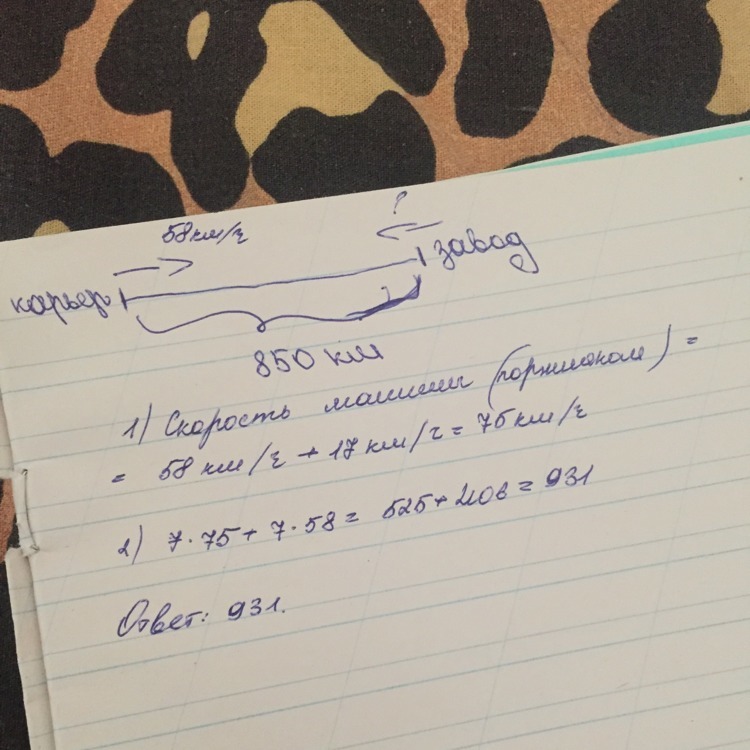 ?
58км/ч
завод
карьер
850 км
1) Скорость машины (порожняком) =
= 58 км/ч + 17 км/ч = 75 км/ч
2) 7·75 + 7·58 = 525 + 406 = 931
Ответ: 931.